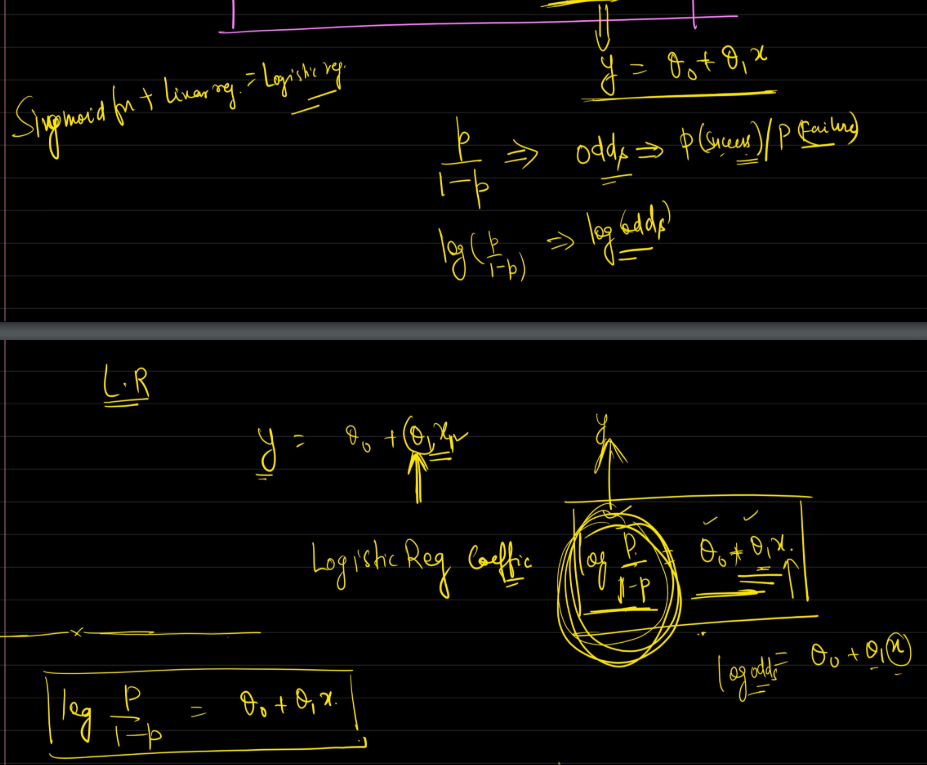 y = θ₀ + θ₁x
Sigmoid fn + Linear reg. = Logistic reg.
p/1-p ⇒ odds ⇒ P(Success)/P(Failure)
log(p/1-p) ⇒ log(odds)
L.R
y = θ₀ + (θ₁x₁)
y
Logistic Reg Coeffic
log p/1-p = θ₀ + θ₁x.
log odds = θ₀ + θ₁(x)
log p/1-p = θ₀ + θ₁x.